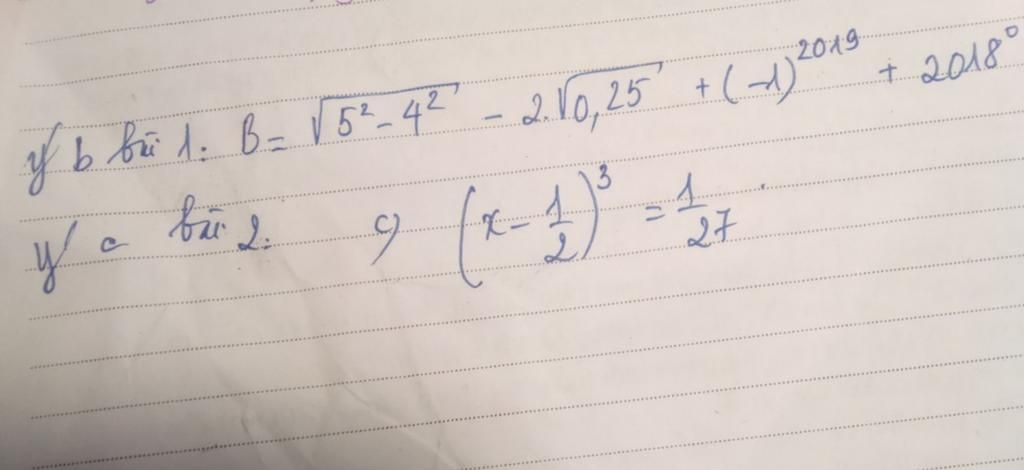 ý b bài 1: B = √(5² - 4²) - 2.√0,25 + (-1)²⁰¹⁹ + 2018⁰
ý c bài 2: c) (x - 1/2)³ = 1/27